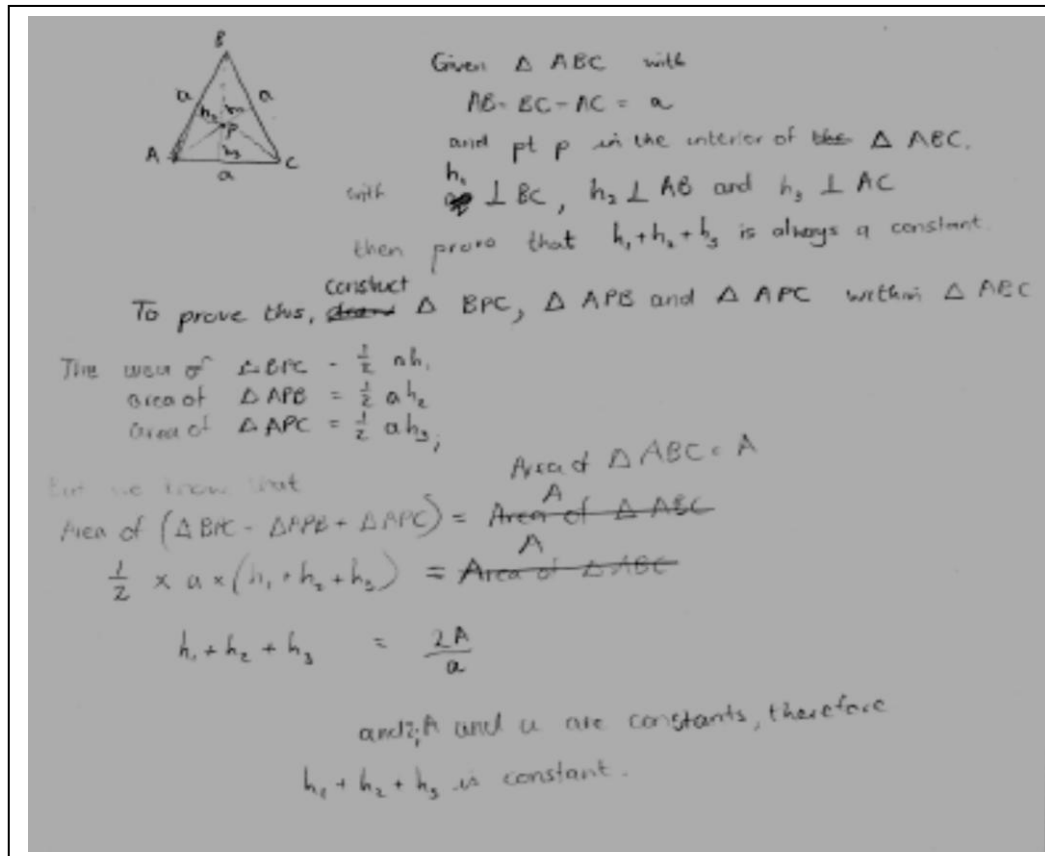 B
a a
h₂ h₁
P
A h₃ C
a
Given Δ ABC with
AB = BC = AC = a
and pt p in the interior of the Δ ABC.
h₁
with ⊥ BC, h₂ ⊥ AB and h₃ ⊥ AC
then prove that h₁+h₂+h₃ is always a constant.
construct
To prove this, draw Δ BPC, Δ APB and Δ APC within Δ ABC
The area of Δ BPC = ½ ah₁
area of Δ APB = ½ ah₂
area of Δ APC = ½ ah₃,
Area of Δ ABC = A
But we know that
A
Area of (Δ BPC + Δ APB + Δ APC) = Area of Δ ABC
A
½ × a × (h₁ + h₂ + h₃) = Area of Δ ABC
h₁ + h₂ + h₃ = 2A/a
and 2, A and a are constants, therefore
h₁ + h₂ + h₃ is constant.